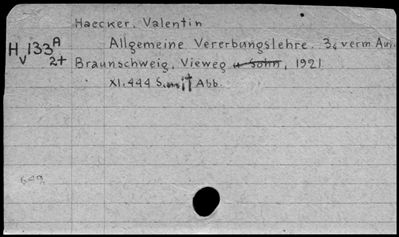 Haecker, Valentin
H V 133 A 2+
Allgemeine Vererbungslehre. 3., verm Aufl.
Braunschweig, Vieweg u. Sohn, 1921
XI, 444 S. mit Abb.
649